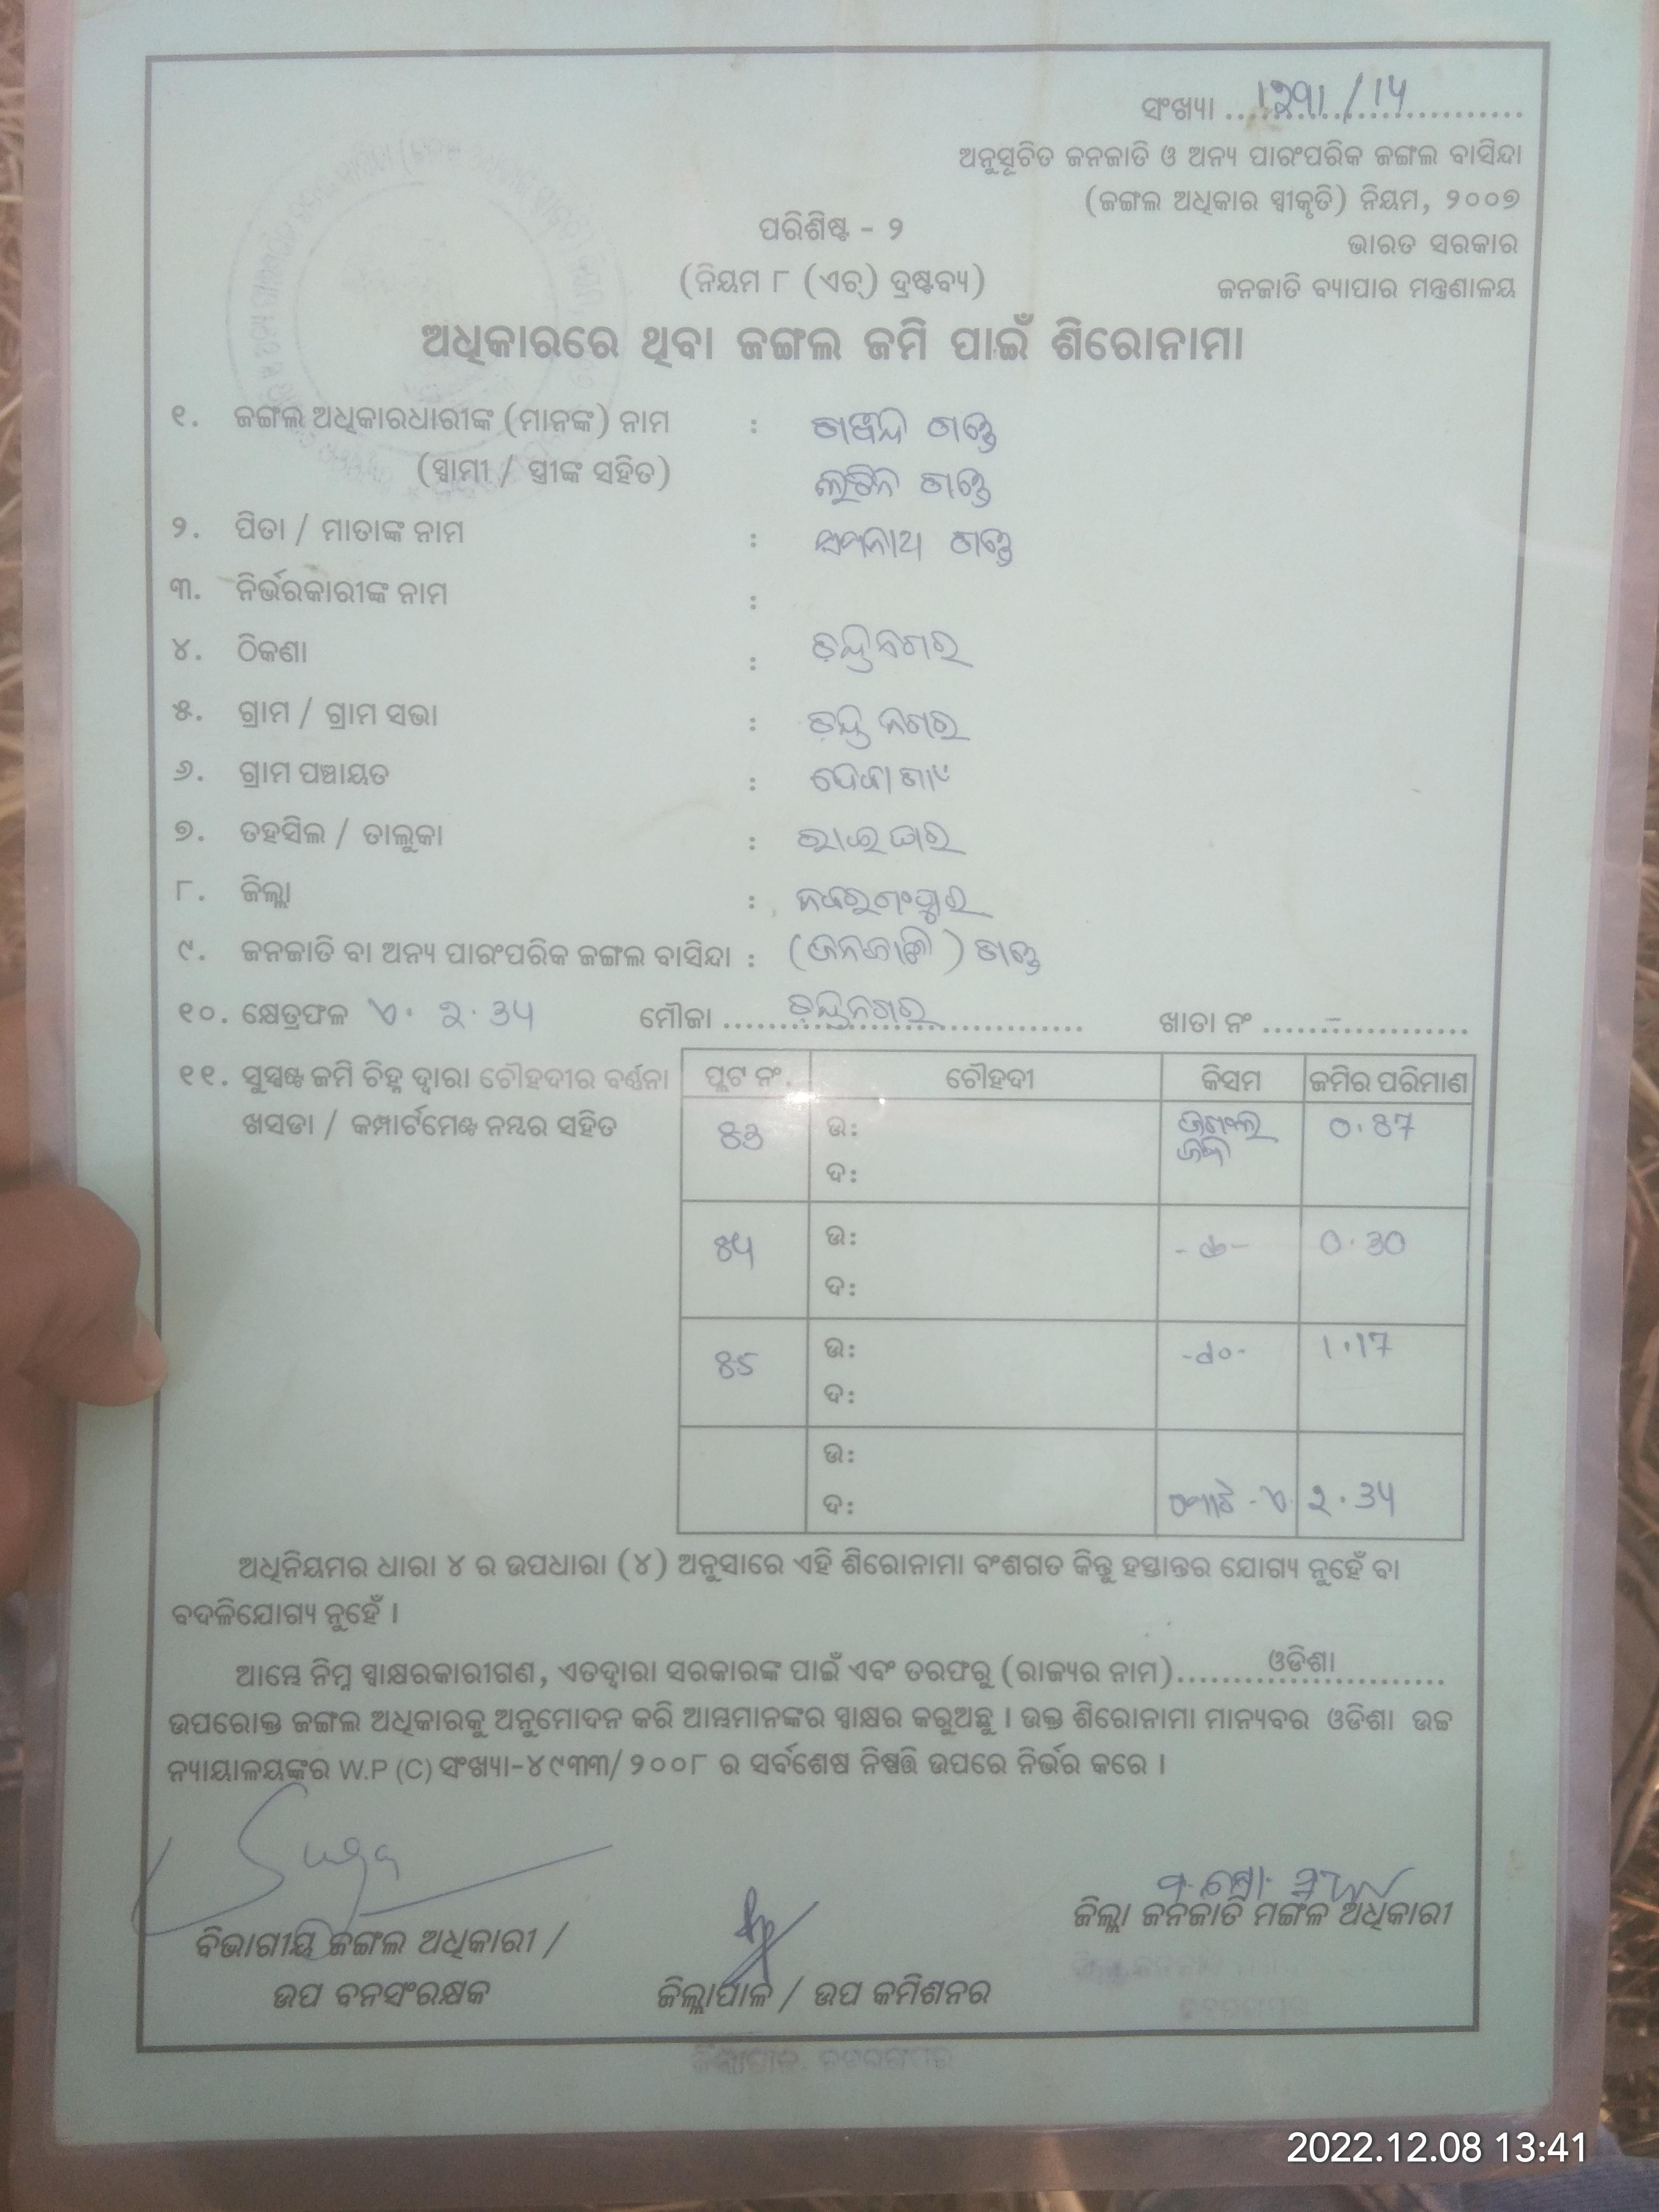 ସଂଖ୍ୟା ....୧୨୩୧/୧୫....
ଅନୁସୂଚିତ ଜନଜାତି ଓ ଅନ୍ୟ ପାରଂପରିକ ଜଙ୍ଗଲ ବାସିନ୍ଦା
(ଜଙ୍ଗଲ ଅଧିକାର ସ୍ୱୀକୃତି) ନିୟମ, ୨୦୦୭
ଭାରତ ସରକାର
ଜନଜାତି ବ୍ୟାପାର ମନ୍ତ୍ରଣାଳୟ
ପରିଶିଷ୍ଟ - ୨
(ନିୟମ ୮ (ଏଚ୍) ଦ୍ରଷ୍ଟବ୍ୟ)
ଅଧିକାରରେ ଥିବା ଜଙ୍ଗଲ ଜମି ପାଇଁ ଶିରୋନାମା
୧. ଜଙ୍ଗଲ ଅଧିକାରଧାରୀଙ୍କ (ମାନଙ୍କ) ନାମ : ଗଣ୍ଡ
(ସ୍ୱାମୀ / ସ୍ତ୍ରୀଙ୍କ ସହିତ) ଗଣ୍ଡ
୨. ପିତା / ମାତାଙ୍କ ନାମ : ଗଣ୍ଡ
୩. ନିର୍ଭରକାରୀଙ୍କ ନାମ :
୪. ଠିକଣା :
୫. ଗ୍ରାମ / ଗ୍ରାମ ସଭା :
୬. ଗ୍ରାମ ପଞ୍ଚାୟତ :
୭. ତହସିଲ / ତାଲୁକା : ରାଇଘର
୮. ଜିଲ୍ଲା : ନବରଙ୍ଗପୁର
୯. ଜନଜାତି ବା ଅନ୍ୟ ପାରଂପରିକ ଜଙ୍ଗଲ ବାସିନ୍ଦା : (ଜନଜାତି) ଗଣ୍ଡ
୧୦. କ୍ଷେତ୍ରଫଳ ଏ. 2.34 ମୌଜା .......... ଖାତା ନଂ ....-....
୧୧. ସୁସ୍ପଷ୍ଟ ଜମି ଚିହ୍ନ ଦ୍ୱାରା ଚୌହଦୀର ବର୍ଣ୍ଣନା ପ୍ଲଟ ନଂ. ଚୌହଦୀ କିସମ ଜମିର ପରିମାଣ
ଖସଡା / କମ୍ପାର୍ଟମେଣ୍ଟ ନମ୍ବର ସହିତ 83 ଉ: ଜଙ୍ଗଲ 0.87
ଦ: ଜମି
84 ଉ: -do- 0.30
ଦ:
85 ଉ: -do- 1.17
ଦ:
ଉ:
ଦ: ମୋଟ - ଏ. 2.34
ଅଧିନିୟମର ଧାରା ୪ ର ଉପଧାରା (୪) ଅନୁସାରେ ଏହି ଶିରୋନାମା ବଂଶଗତ କିନ୍ତୁ ହସ୍ତାନ୍ତର ଯୋଗ୍ୟ ନୁହେଁ ବା
ବଦଳିଯୋଗ୍ୟ ନୁହେଁ ।
ଆମ୍ଭେ ନିମ୍ନ ସ୍ୱାକ୍ଷରକାରୀଗଣ, ଏତଦ୍ୱାରା ସରକାରଙ୍କ ପାଇଁ ଏବଂ ତରଫରୁ (ରାଜ୍ୟର ନାମ)........ଓଡିଶା........
ଉପରୋକ୍ତ ଜଙ୍ଗଲ ଅଧିକାରକୁ ଅନୁମୋଦନ କରି ଆମ୍ଭମାନଙ୍କର ସ୍ୱାକ୍ଷର କରୁଅଛୁ । ଉକ୍ତ ଶିରୋନାମା ମାନ୍ୟବର ଓଡିଶା ଉଚ୍ଚ
ନ୍ୟାୟାଳୟଙ୍କର W.P (C) ସଂଖ୍ୟା-୪୯୩୩/୨୦୦୮ ର ସର୍ବଶେଷ ନିଷ୍ପତ୍ତି ଉପରେ ନିର୍ଭର କରେ ।
ବିଭାଗୀୟ ଜଙ୍ଗଲ ଅଧିକାରୀ /
ଉପ ବନସଂରକ୍ଷକ
ଜିଲ୍ଲାପାଳ / ଉପ କମିଶନର
ଜିଲ୍ଲା ଜନଜାତି ମଙ୍ଗଳ ଅଧିକାରୀ
ଜିଲ୍ଲାପାଳ, ନବରଙ୍ଗପୁର
2022.12.08 13:41